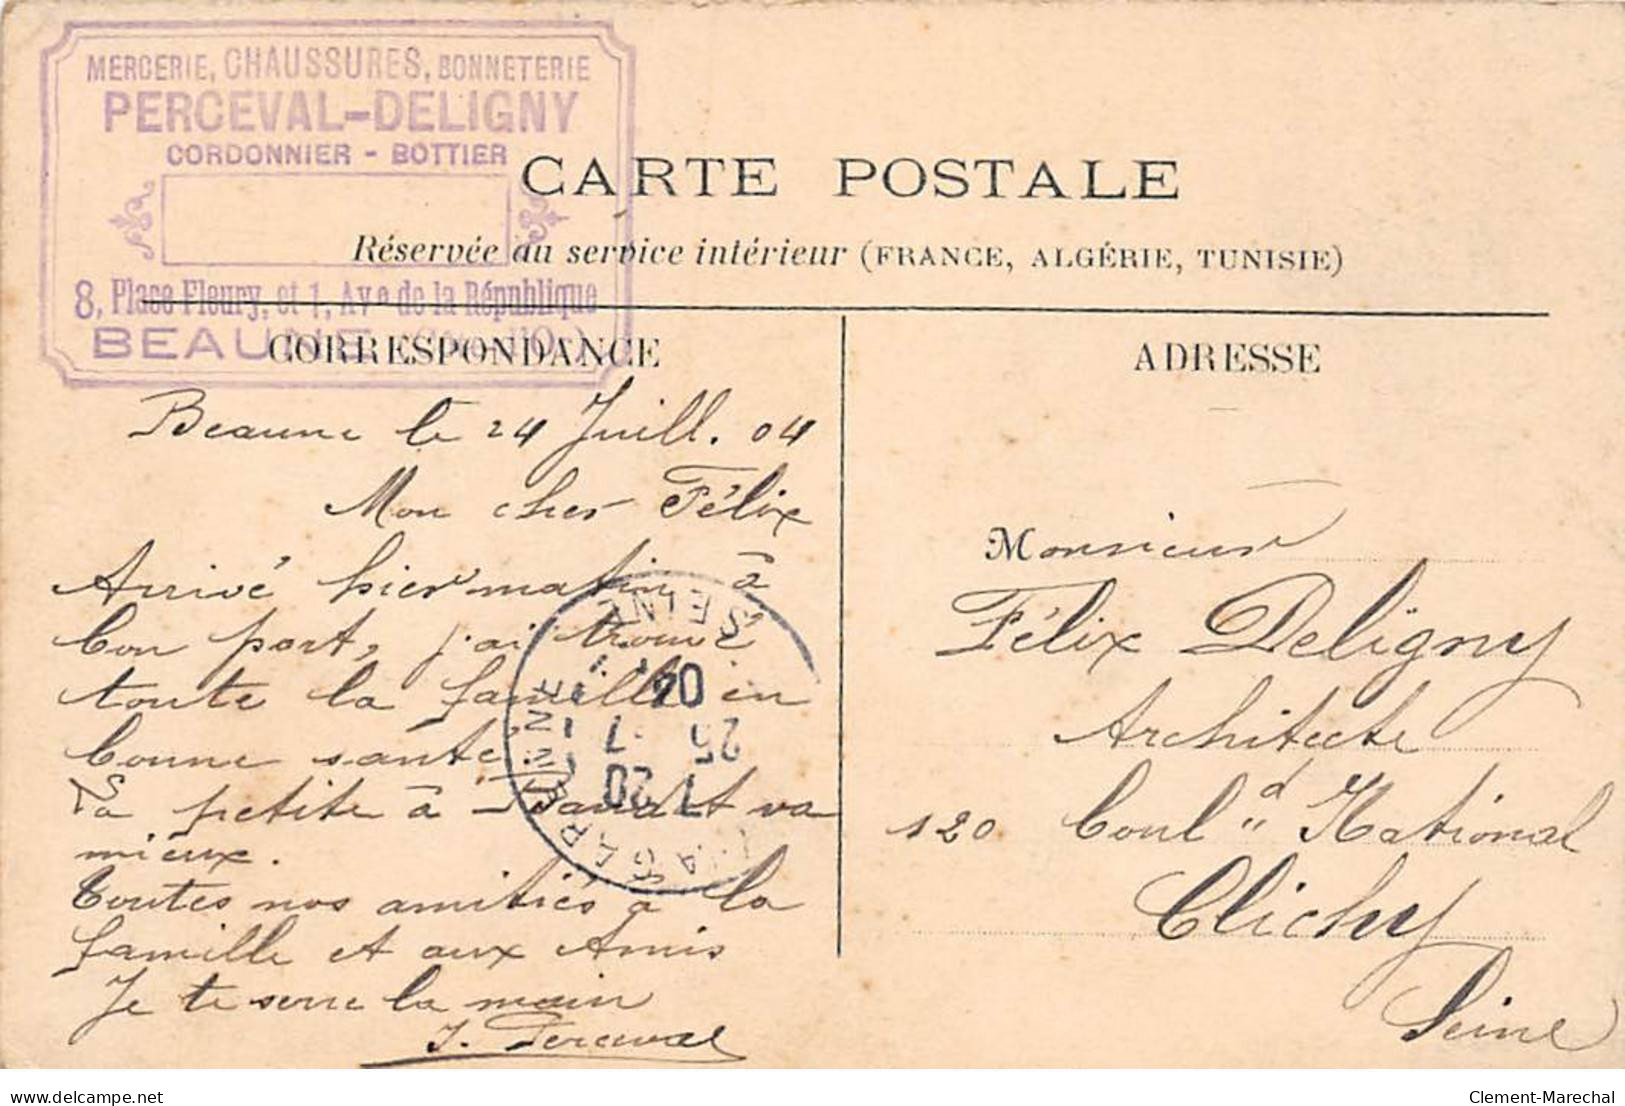 MERCERIE, CHAUSSURES, BONNETERIE
PERCEVAL-DELIGNY
CORDONNIER - BOTTIER
8, Place Fleury, et 1, Ave de la République
BEAUNE
CARTE POSTALE
Réservée au service intérieur (FRANCE, ALGÉRIE, TUNISIE)
CORRESPONDANCE
Beaune le 24 Juill. 04
Mon cher Félix
Arrivé hier matin à
bon port, j'ai trouvé
toute la famille en
bonne santé.
La petite à va
mieux.
Toutes nos amitiés à la
famille et aux Amis
Je te serre la main
J. Perceval
SEINE
04
25 7
7 20
LA GARENNE
ADRESSE
Monsieur
Félix Deligny
Architecte
120 Boul.d National
Clichy
Seine
delcampe.net
Clement-Marechal